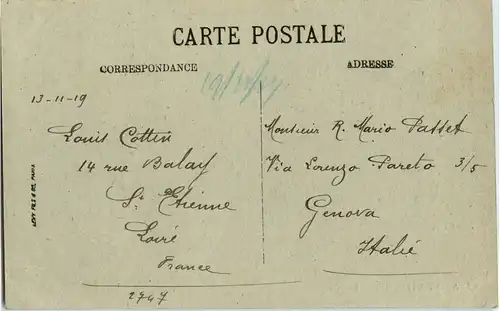 CARTE POSTALE
CORRESPONDANCE
ADRESSE
13-11-19
Louis Cottin
14 rue Balay
St Etienne
Loire
France
2747
Monsieur R. Mario Passet
Via Lorenzo Pareto 3/5
Genova
Italie
LEVY FILS & CIE, PARIS